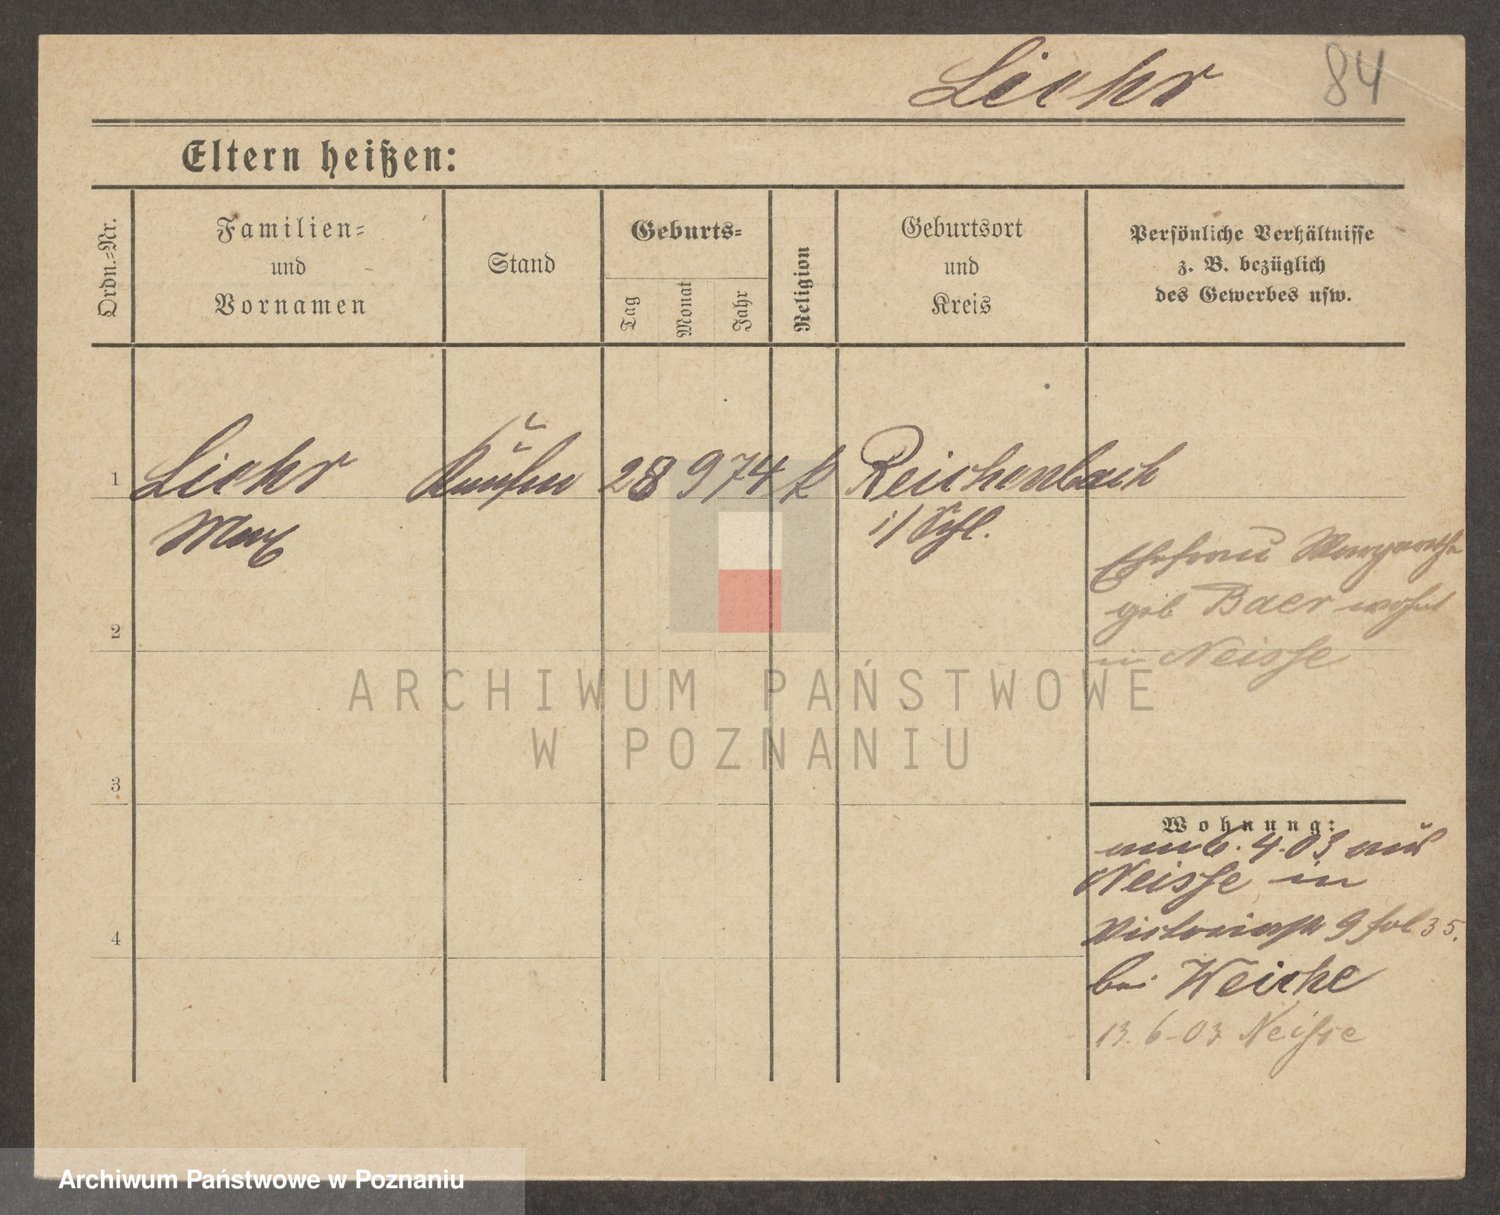 Liehr 84
Eltern heißen:
Ordn.-Nr.
Familien-
und
Vornamen
Stand
Geburts-
Tag
Monat
Jahr
Religion
Geburtsort
und
Kreis
Persönliche Verhältnisse
z. B. bezüglich
des Gewerbes usw.
1 Liehr Kaufm 28 9 74 k Reichenbach
Max i/Schl.
Ehefrau Margarethe
geb Baer wohnt
in Neisse
2
3
4
Wohnung:
am 6.4.03 aus
Neisse in
Victoriastr 9 fol 35.
bei Weiche
13.6-03 Neisse
ARCHIWUM PAŃSTWOWE
W POZNANIU
Archiwum Państwowe w Poznaniu